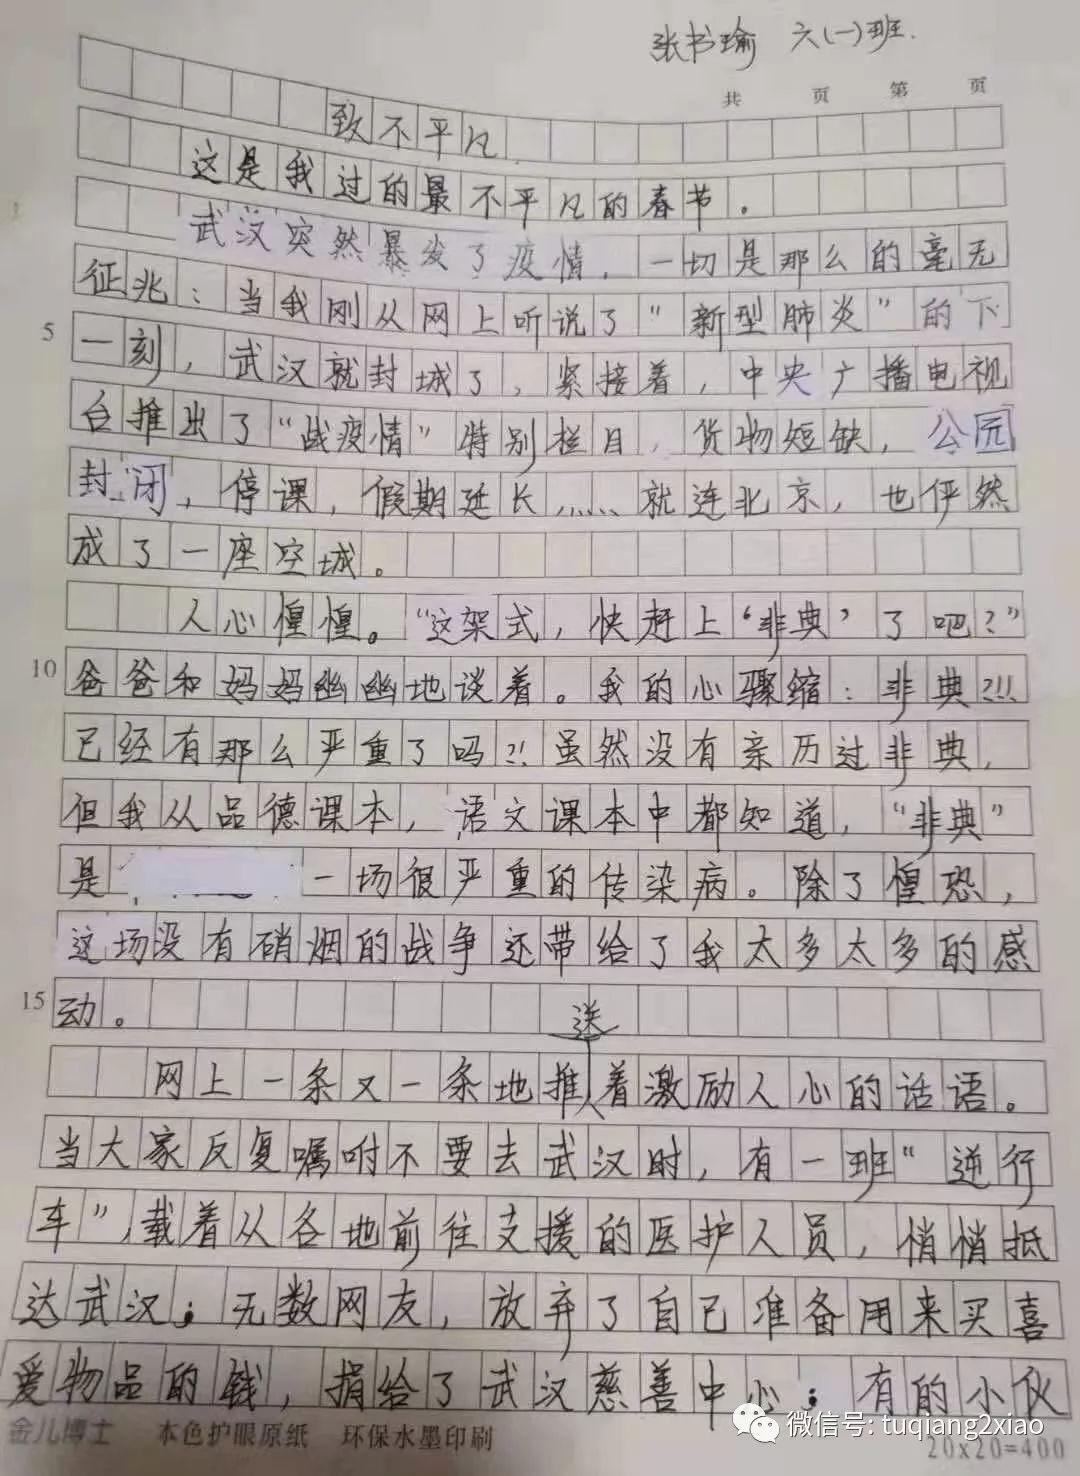 张书瑜 六(一)班.
共 页 第 页
致不平凡
这是我过的最不平凡的春节。
武汉突然暴发了疫情，一切是那么的毫无
征兆：当我刚从网上听说了“新型肺炎”的下
5 一刻，武汉就封城了，紧接着，中央广播电视
台推出了“战疫情”特别栏目，货物短缺，公园
封闭，停课，假期延长……就连北京，也伻然
成了一座空城。
人心惶惶。“这架式，快赶上‘非典’了吧？”
10 爸爸和妈妈幽幽地谈着。我的心骤缩：非典?!!
已经有那么严重了吗?!虽然没有亲历过非典，
但我从品德课本，语文课本中都知道，“非典”
是 一场很严重的传染病。除了惶恐，
这场没有硝烟的战争还带给了我太多太多的感
15 动。
网上一条又一条地推送着激励人心的话语。
当大家反复嘱咐不要去武汉时，有一班“逆行
车”，载着从各地前往支援的医护人员，悄悄抵
达武汉；无数网友，放弃了自己准备用来买喜
爱物品的钱，捐给了武汉慈善中心；有的小伙
金儿博士 本色护眼原纸 环保水墨印刷
微信号: tuqiang2xiao
20x20=400